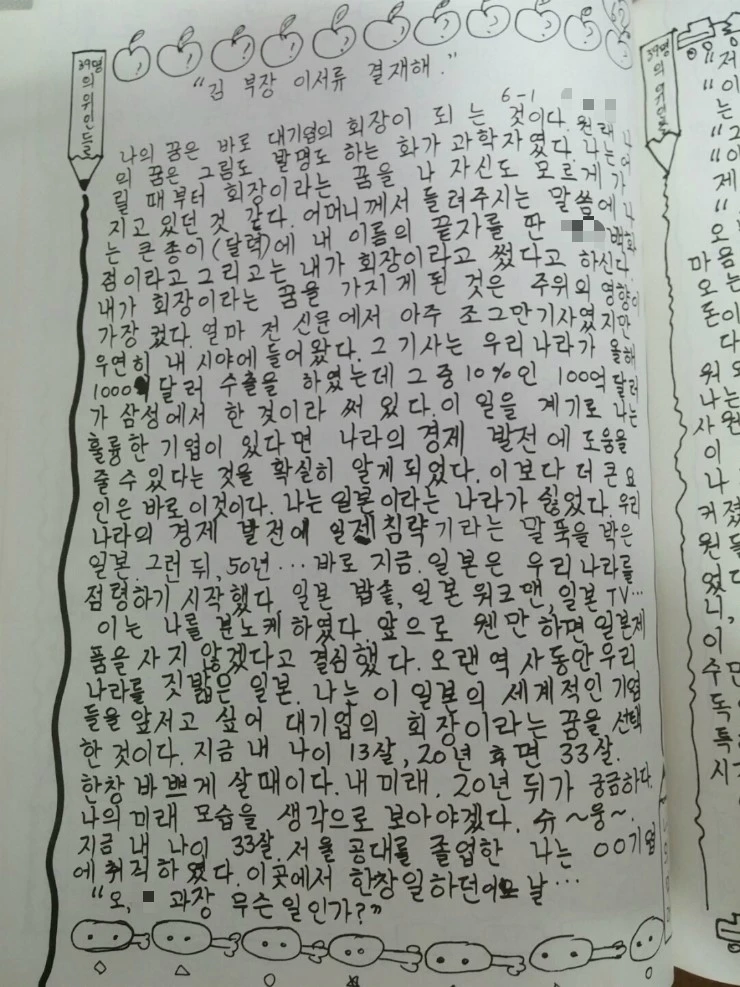 39명의 위인들
"김 부장 이서류 결재해."
6-1
나의 꿈은 바로 대기업의 회장이 되는 것이다. 원래 나
의 꿈은 그림도 발명도 하는 화가 과학자였다. 나는 어
릴 때부터 회장이라는 꿈을 나 자신도 모르게 가
지고 있던 것 같다. 어머니께서 들려주시는 말씀에 나
는 큰 종이(달력)에 내 이름의 끝자를 딴 백화
점이라고 그리고는 내가 회장이라고 썼다고 하신다.
내가 회장이라는 꿈을 가지게 된 것은 주위의 영향이
가장 컸다. 얼마 전 신문에서 아주 조그만기사였지만
우연히 내 시야에 들어왔다. 그 기사는 우리 나라가 올해
1000 달러 수출을 하였는데 그 중 10%인 100억 달러
가 삼성에서 한 것이라 써 있다. 이 일을 계기로 나는
훌륭한 기업이 있다면 나라의 경제 발전에 도움을
줄 수 있다는 것을 확실히 알게 되었다. 이보다 더 큰 요
인은 바로 이것이다. 나는 일본이라는 나라가 싫었다. 우리
나라의 경제 발전에 일제 침략기라는 말뚝을 박은
일본. 그런 뒤, 50년… 바로 지금. 일본은 우리 나라를
점령하기 시작했다. 일본 밥솥, 일본 워크맨, 일본 TV…
이는 나를 분노케 하였다. 앞으로 웬만하면 일본제
품을 사지 않겠다고 결심했다. 오랜 역사동안 우리
나라를 짓밟은 일본. 나는 이 일본의 세계적인 기업
들을 앞서고 싶어 대기업의 회장이라는 꿈을 선택
한 것이다. 지금 내 나이 13살, 20년 후면 33살.
한창 바쁘게 살때이다. 내 미래. 20년 뒤가 궁금하다.
나의 미래 모습을 생각으로 보아야겠다. 슈~웅~.
지금 내 나이 33살. 서울 공대를 졸업한 나는 00기업
에 취직하였다. 이곳에서 한창일하던 어느 날…
"오, 과장 무슨 일인가?"
39명의 위인들
"저
"이
는
"그
"이
제
"
오
마음
오는
돈이
다
워
나는
사원
이
나
커졌
원들
었다
니,
이
수만
독
특
시